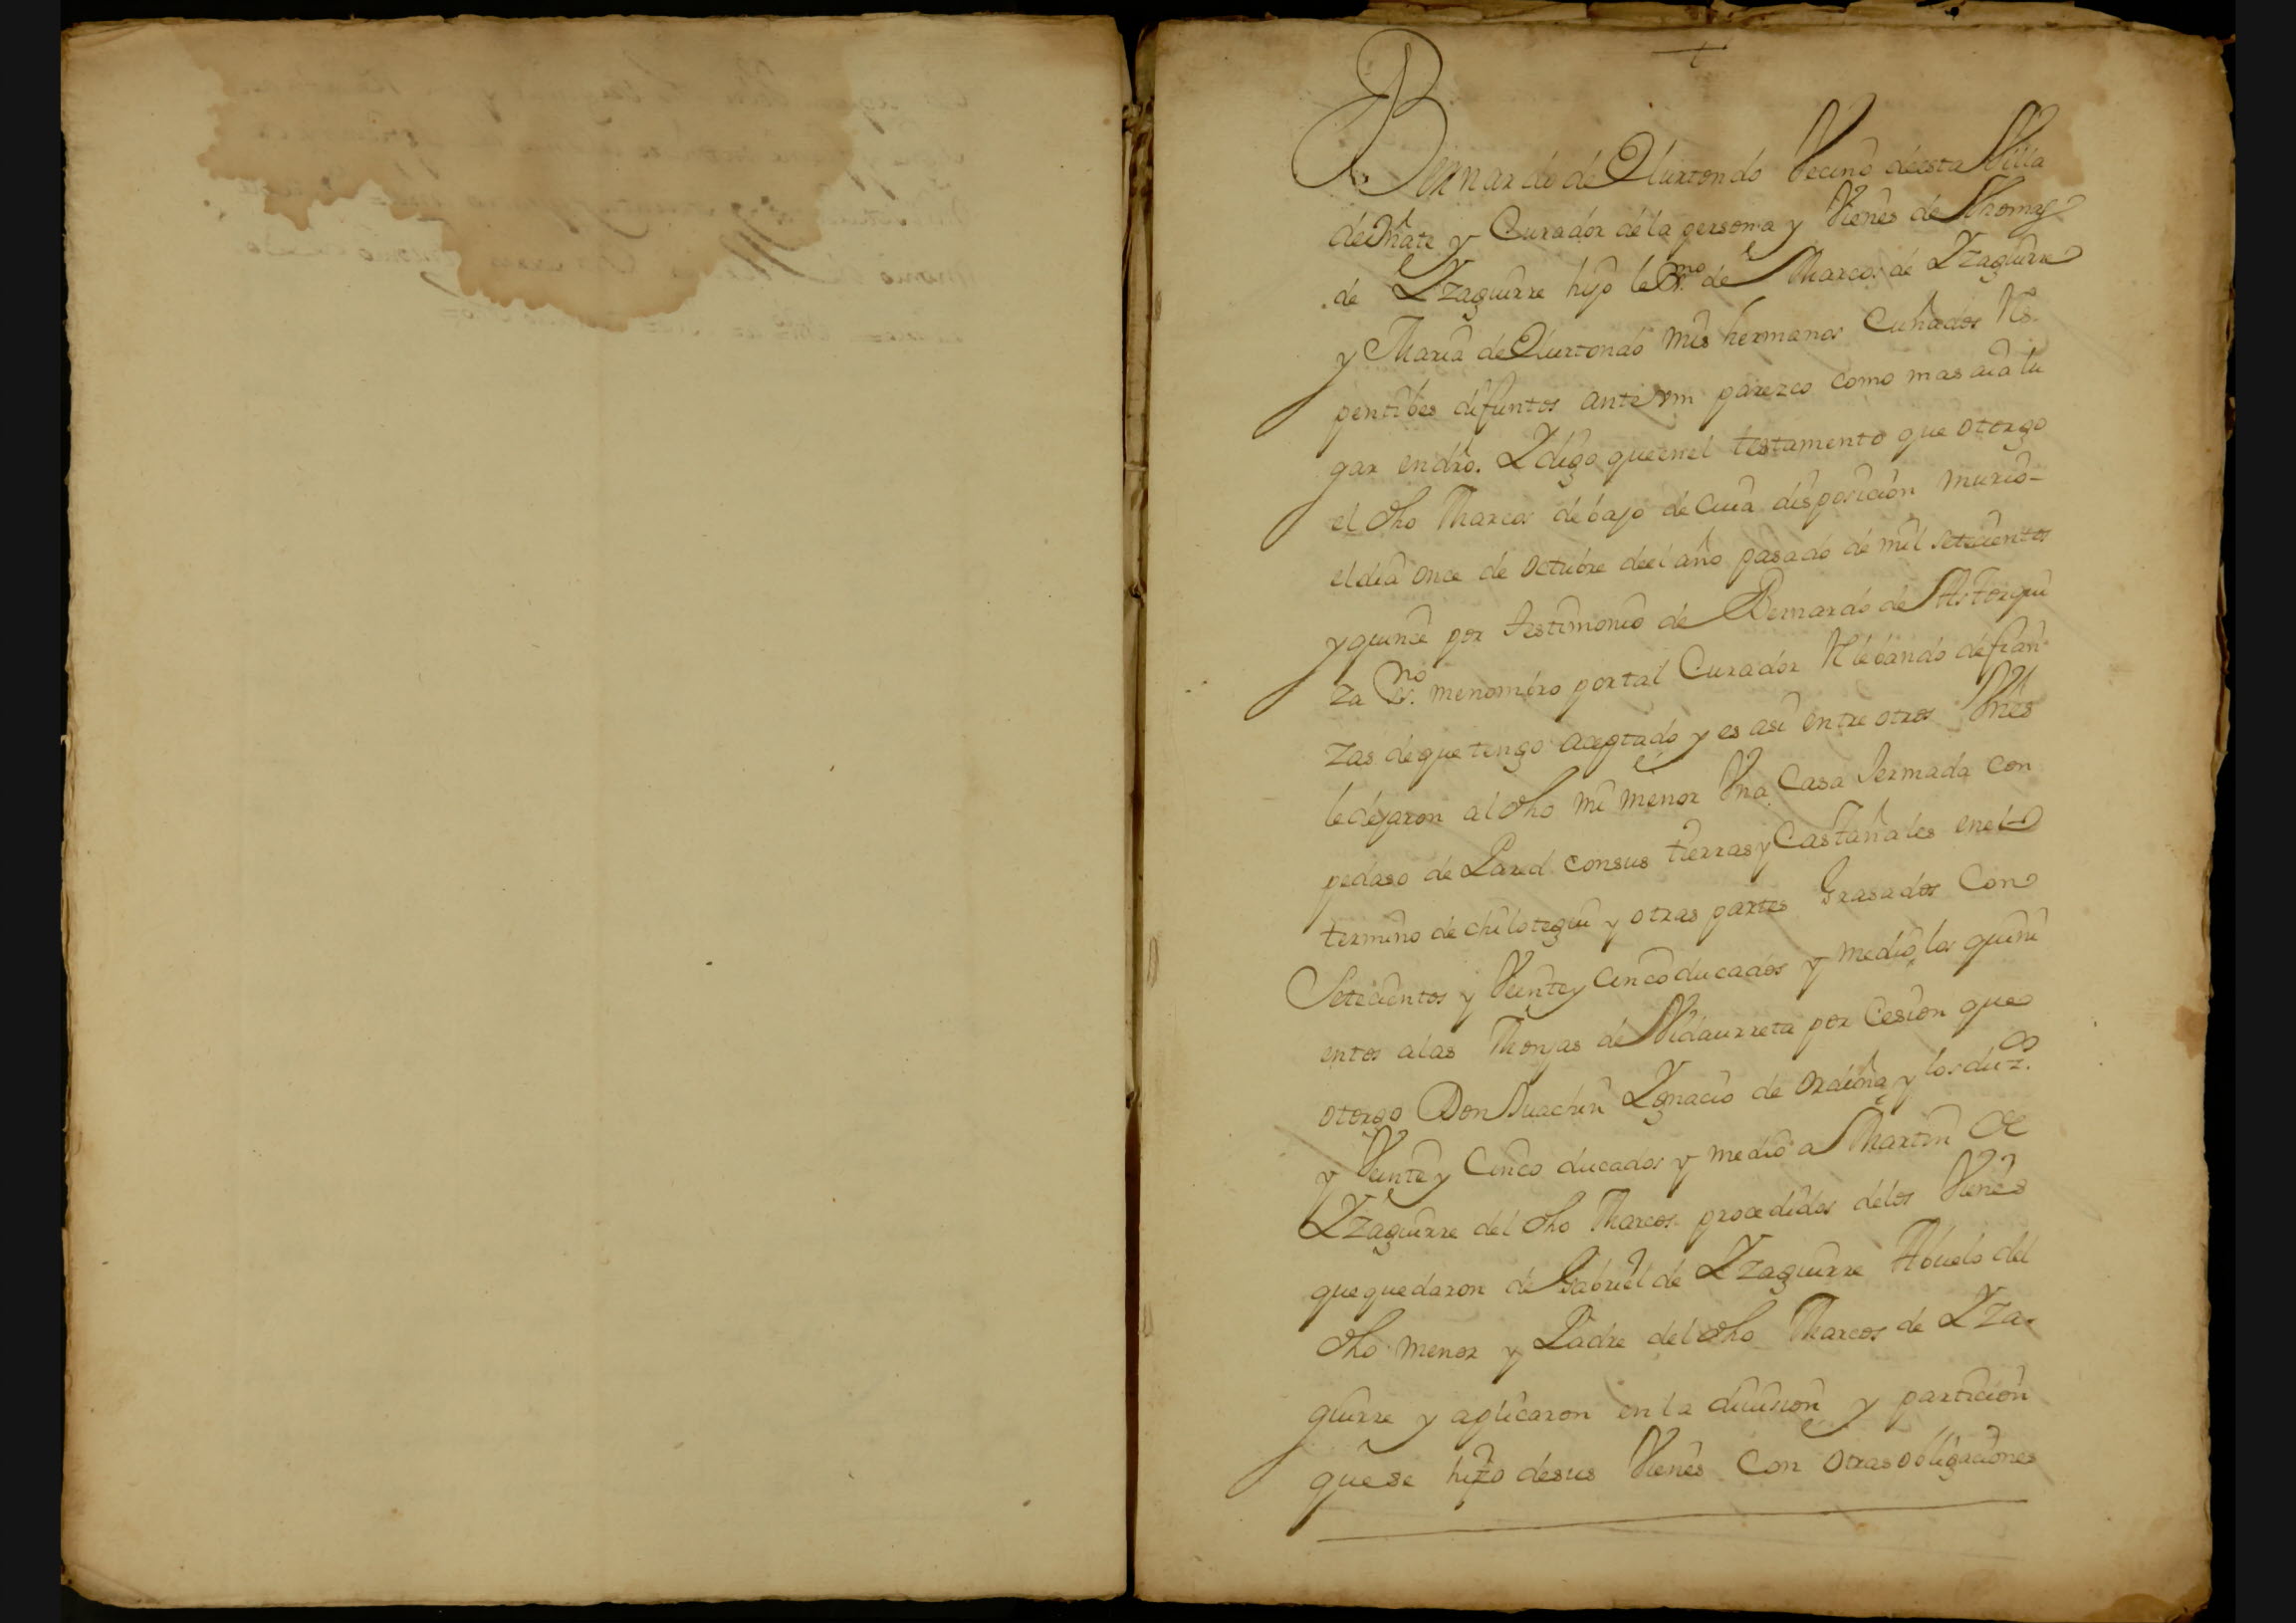 t
Bernardo de Olurtondo Vecino deesta Villa
de Oñate y Curador de la persona y Vienes de Thomas
de Yzaguirre hijo lexmo. de Marcos de Yzaguirre
y Maria de Olurtondo mis hermanos Cuñados Rs.
pentibes difuntos ante vm parezco como mas aia lu
gar endro. Y digo que en el testamento que otorgo
el dho Marcos debajo de Cuia disposicion murio-
el dia once de octubre deel año pasado de mil setecientos
y quince por testimonio de Bernardo de Astorqui
za no. menombro portal Curador Rlebando defian
zas de que tengo aceptado y es asi entre otros Vnes
le dejaron al dho mi menor Vna Casa Jermada con
pedaso de Pared consus tierras y Castañales enel
termino de chilotegui y otras partes Grasados Con
Setecientos y Veinte y Cinco ducados y medio los quini
entos alas Monjas de Vidaurreta por Cesion que
otorgo Don Juachin Ygnacio de Ordiona y los duz.os
y Veinte y Cinco ducados y medio a Martin de
Yzaguirre del dho Marcos procedidos delos Vienes
que quedaron de Gabriel de Yzaguirre Abuelo del
dho menor y Padre del dho Marcos de Yza-
guirre y aplicaron en la diuision y particion
que se hizo desus Vienes Con otras obligaciones